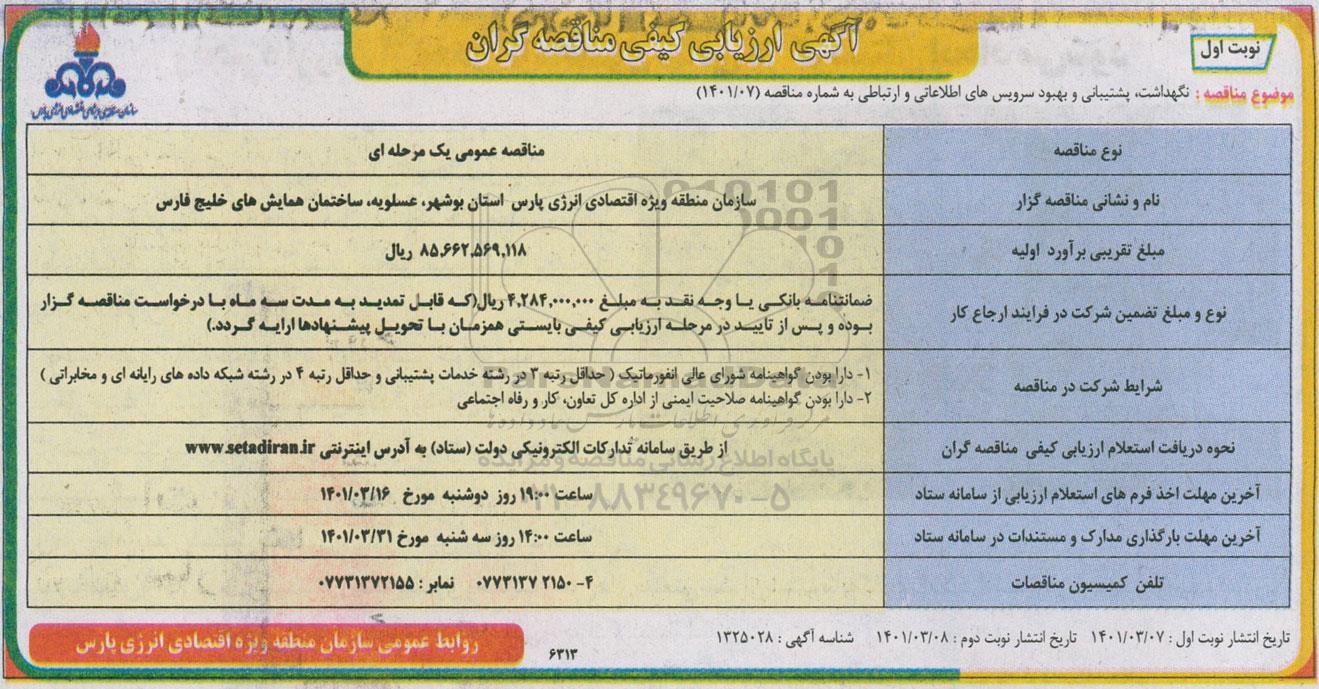 آگهی ارزیابی کیفی مناقصه گران
نوبت اول
سازمان منطقه ویژه اقتصادی انرژی پارس
موضوع مناقصه : نگهداشت، پشتیبانی و بهبود سرویس های اطلاعاتی و ارتباطی به شماره مناقصه (۱۴۰۱/۰۷)
نوع مناقصه
مناقصه عمومی یک مرحله ای
نام و نشانی مناقصه گزار
سازمان منطقه ویژه اقتصادی انرژی پارس استان بوشهر، عسلویه، ساختمان همایش های خلیج فارس
مبلغ تقریبی برآورد اولیه
۸۵,۶۶۲,۵۶۹,۱۱۸ ریال
نوع و مبلغ تضمین شرکت در فرایند ارجاع کار
ضمانتنامه بانکی یا وجه نقد به مبلغ ۴,۲۸۴,۰۰۰,۰۰۰ ریال(که قابل تمدید به مدت سه ماه با درخواست مناقصه گزار
بوده و پس از تایید در مرحله ارزیابی کیفی بایستی همزمان با تحویل پیشنهادها ارایه گردد.)
شرایط شرکت در مناقصه
۱- دارا بودن گواهینامه شورای عالی انفورماتیک ( حداقل رتبه ۳ در رشته خدمات پشتیبانی و حداقل رتبه ۴ در رشته شبکه داده های رایانه ای و مخابراتی )
۲- دارا بودن گواهینامه صلاحیت ایمنی از اداره کل تعاون، کار و رفاه اجتماعی
نحوه دریافت استعلام ارزیابی کیفی مناقصه گران
از طریق سامانه تدارکات الکترونیکی دولت (ستاد) به آدرس اینترنتی www.setadiran.ir
آخرین مهلت اخذ فرم های استعلام ارزیابی از سامانه ستاد
ساعت ۱۹:۰۰ روز دوشنبه مورخ ۱۴۰۱/۰۳/۱۶
آخرین مهلت بارگذاری مدارک و مستندات در سامانه ستاد
ساعت ۱۴:۰۰ روز سه شنبه مورخ ۱۴۰۱/۰۳/۳۱
تلفن کمیسیون مناقصات
۴- ۲۱۵۰ ۰۷۷۳۱۳۷ نمابر : ۰۷۷۳۱۳۷۲۱۵۵
تاریخ انتشار نوبت اول : ۱۴۰۱/۰۳/۰۷ تاریخ انتشار نوبت دوم : ۱۴۰۱/۰۳/۰۸ شناسه آگهی : ۱۳۲۵۰۲۸
۶۳۱۳
روابط عمومی سازمان منطقه ویژه اقتصادی انرژی پارس
ParsNamadData
پایگاه اطلاع رسانی مناقصه و مزایده
۰۲۱-۸۸۳۴۹۶۷۰-۵